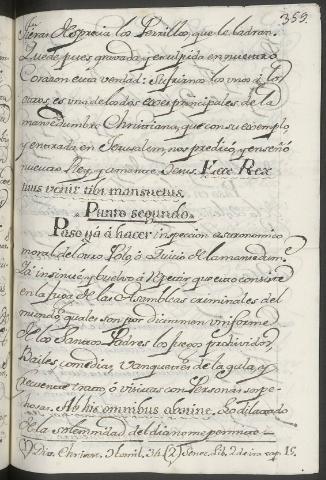 359.
fieras desprecia los Perrillos que le ladran.
Quede pues gravada, y esculpida en nuestro
Corazon esta verdad: Sufrirnos los unos à los
otros, es uno de los dos exes principales de la
mansedumbre Christiana, que con su exemplo,
y entrada en Jerusalem, nos predicó, y enseñó
nuestro Rey, y amante Jesus. Ecce Rex
tuus venit tibi mansuetus.
Punto segundo.
Paso yá á hacer inspeccion astronomico
moral del otro Polo, ò Quicio de la mansedumᵉ
Ya insinué, y buelvo à repetir que este consiste
en la fuga de las Asambleas criminales del
mundo, quales son por dictamen uniforme
de los Santos Padres los juegos prohividos,
Bailes, comedias, vanquetes de la gula, y
frecuente trato, ò visitas con Personas sospe-
chosas. Ab his omnibus abstine. Lo dilatado
de la solemnidad del dia no me permite
(1) Div. Chrisost. Homil. 34. (2) Senec. Lib. 2 de ira cap. 15.